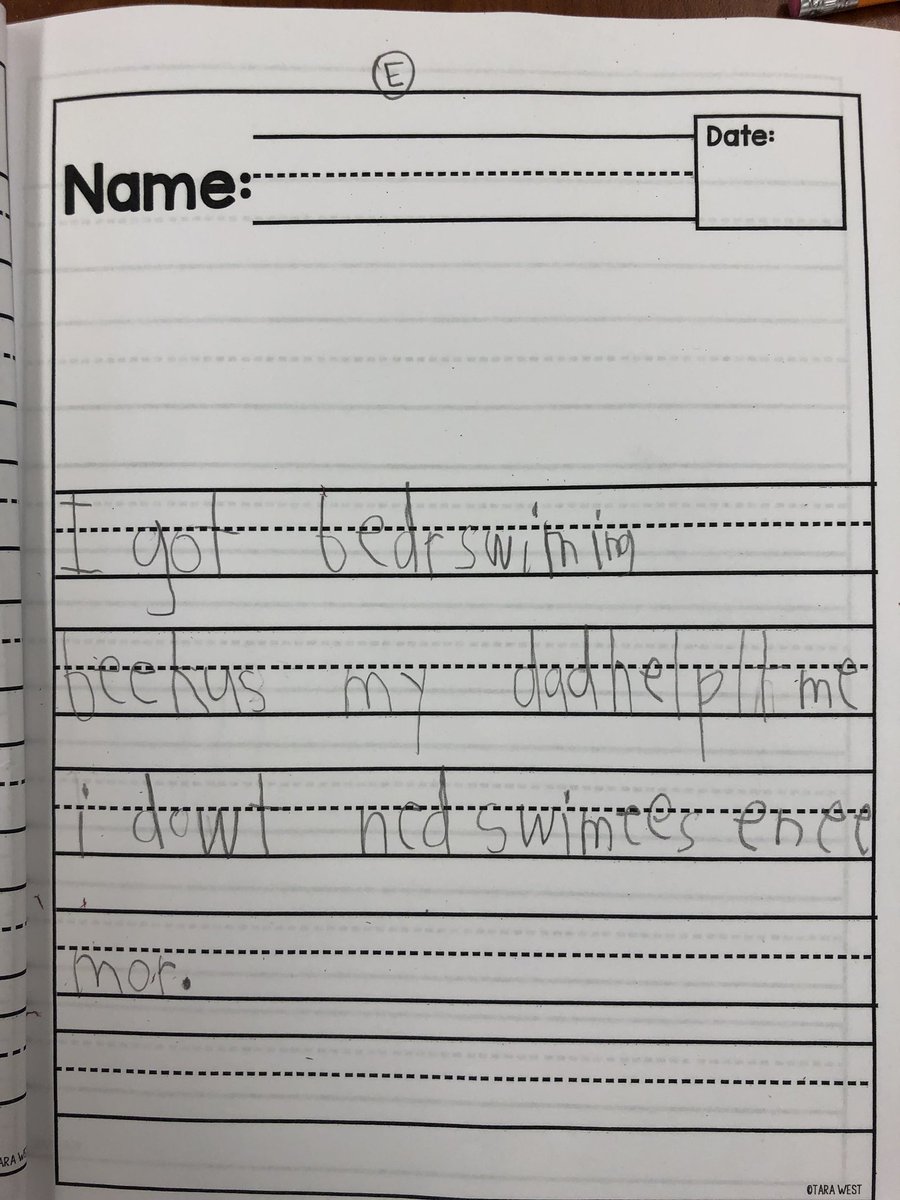 E
Name:
Date:
I got bedr swiming
beekus my dad helplt me
i dowt ned swimees enee
mor.
©TARA WEST